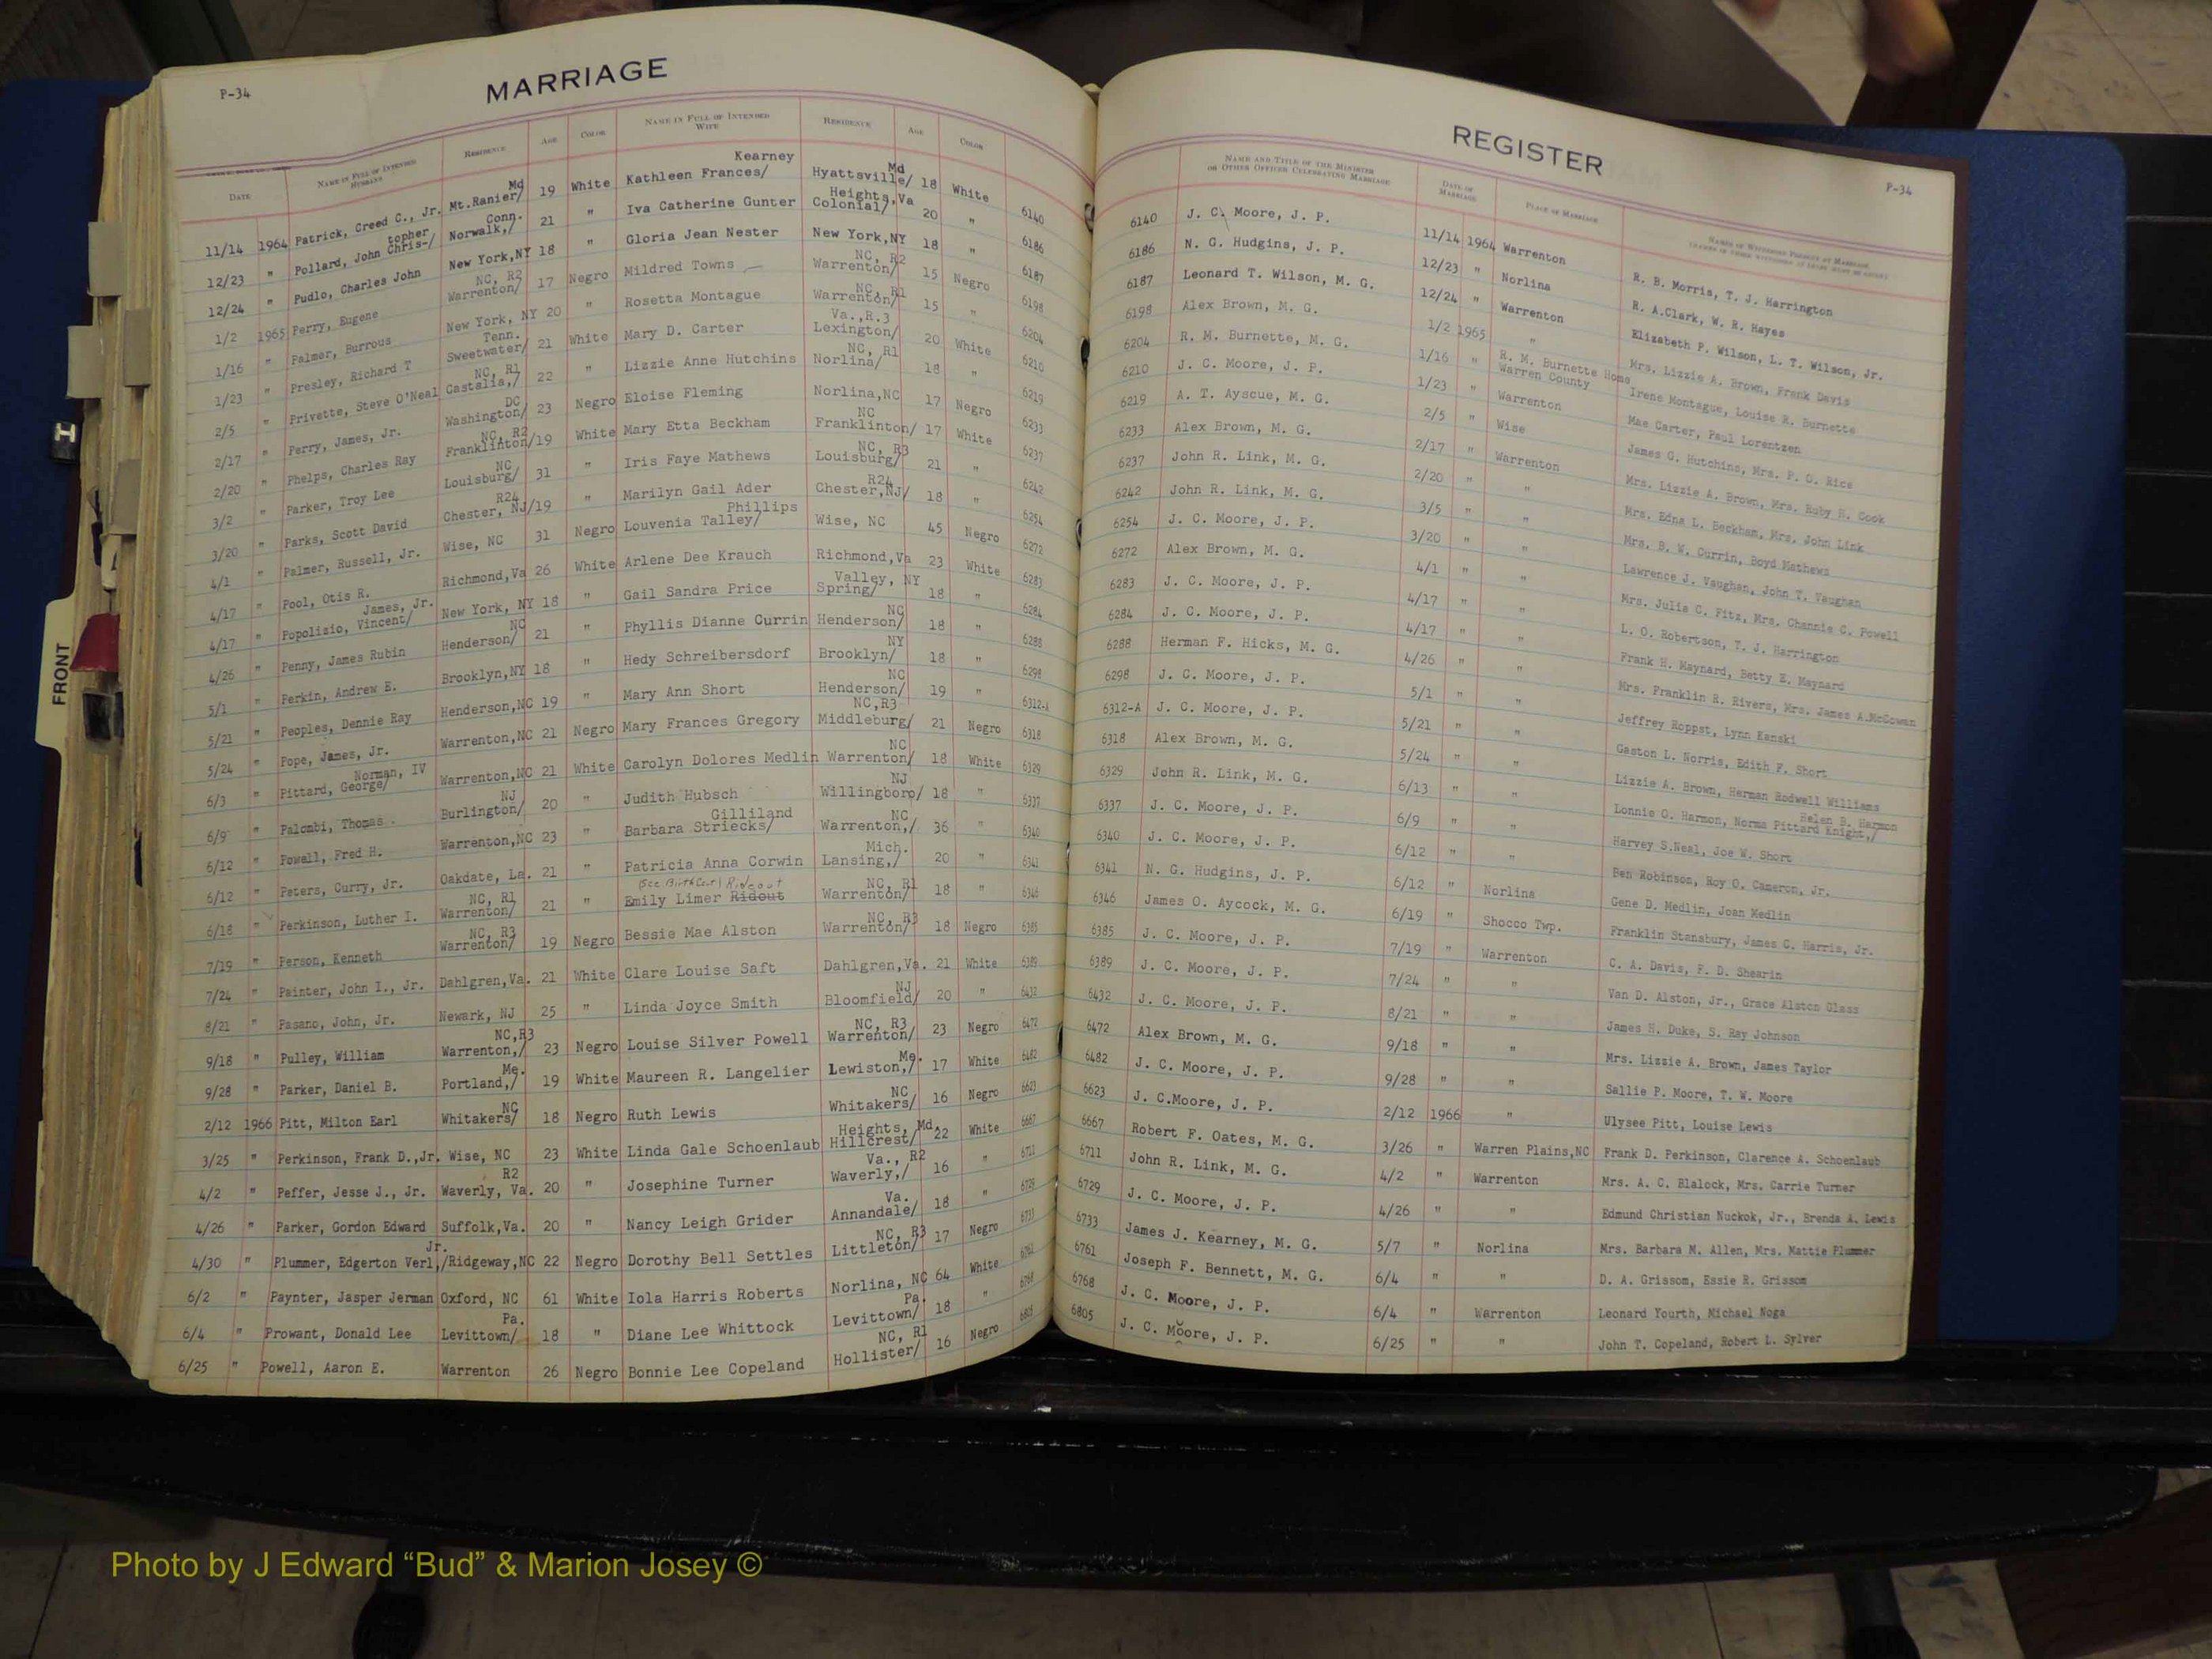 P-34
MARRIAGE
DATE NAME IN FULL OF INTENDED HUSBAND RESIDENCE AGE COLOR NAME IN FULL OF INTENDED WIFE RESIDENCE AGE COLOR
11/14 1964 Patrick, Creed C., Jr. Mt.Ranier/ Md 19 White Kathleen Frances/ Kearney Hyattsville/ Md 18 White 6140
12/23 " Pollard, John Chris-/ topher Norwalk,/ Conn. 21 " Iva Catherine Gunter Colonial/ Heights,Va 20 " 6186
12/24 " Pudlo, Charles John New York,NY 18 " Gloria Jean Nester New York,NY 18 " 6187
1/2 1965 Perry, Eugene Warrenton/ NC, R2 17 Negro Mildred Towns Warrenton/ NC, R2 15 Negro 6198
1/16 " Palmer, Burrous New York, NY 20 " Rosetta Montague Warrenton/ NC, R1 15 " 6204
1/23 " Presley, Richard T Sweetwater/ Tenn. 21 White Mary D. Carter Lexington/ Va.,R.3 20 White 6210
2/5 " Privette, Steve O'Neal Castalia,/ NC, R1 22 " Lizzie Anne Hutchins Norlina/ NC, R1 18 " 6219
2/17 " Perry, James, Jr. Washington/ DC 23 Negro Eloise Fleming Norlina,NC 17 Negro 6233
2/20 " Phelps, Charles Ray Franklinton/ NC, R2 19 White Mary Etta Beckham Franklinton/ NC 17 White 6237
3/2 " Parker, Troy Lee Louisburg/ NC 31 " Iris Faye Mathews Louisburg/ NC, R3 21 " 6242
3/20 " Parks, Scott David Chester, NJ/ R24 19 " Marilyn Gail Ader Chester,NJ/ R24 18 " 6254
4/1 " Palmer, Russell, Jr. Wise, NC 31 Negro Louvenia Talley/ Phillips Wise, NC 45 Negro 6272
4/17 " Pool, Otis R. Richmond,Va 26 White Arlene Dee Krauch Richmond,Va 23 White 6283
4/17 " Popolizio, Vincent/ James, Jr. New York, NY 18 " Gail Sandra Price Spring/ Valley, NY 18 " 6284
4/26 " Penny, James Rubin Henderson/ NC 21 " Phyllis Dianne Currin Henderson/ NC 18 " 6288
5/1 " Perkin, Andrew E. Brooklyn,NY 18 " Hedy Schreibersdorf Brooklyn/ NY 18 " 6298
5/21 " Peoples, Dennie Ray Henderson,NC 19 " Mary Ann Short Henderson/ NC 19 " 6312-A
5/24 " Pope, James, Jr. Warrenton,NC 21 Negro Mary Frances Gregory Middleburg/ NC,R3 21 Negro 6318
6/3 " Pittard, George/ Norman, IV Warrenton,NC 21 White Carolyn Dolores Medlin Warrenton/ NC 18 White 6329
6/9 " Palombi, Thomas Burlington/ NJ 20 " Judith Hubsch Willingboro/ NJ 18 " 6337
6/12 " Powell, Fred H. Warrenton,NC 23 " Barbara Striecks/ Gilliland Warrenton,/ NC 36 " 6340
6/12 " Peters, Curry, Jr. Oakdate, La. 21 " Patricia Anna Corwin Lansing,/ Mich. 20 " 6341
6/18 " Perkinson, Luther I. Warrenton/ NC, R1 21 " Emily Limer Ridout (See Birth Cert) Rideout Warrenton/ NC, R1 18 " 6346
7/19 " Person, Kenneth Warrenton/ NC, R3 19 Negro Bessie Mae Alston Warrenton/ NC, R3 18 Negro 6385
7/24 " Painter, John I., Jr. Dahlgren,Va. 21 White Clare Louise Saft Dahlgren,Va. 21 White 6389
8/21 " Pasano, John, Jr. Newark, NJ 25 " Linda Joyce Smith Bloomfield/ NJ 20 " 6432
9/18 " Pulley, William Warrenton,/ NC,R3 23 Negro Louise Silver Powell Warrenton/ NC, R3 23 Negro 6472
9/28 " Parker, Daniel B. Portland,/ Me. 19 White Maureen R. Langelier Lewiston,/ Me. 17 White 6482
2/12 1966 Pitt, Milton Earl Whitakers/ NC 18 Negro Ruth Lewis Whitakers/ NC 16 Negro 6623
3/25 " Perkinson, Frank D.,Jr. Wise, NC 23 White Linda Gale Schoenlaub Hillcrest/ Heights, Md. 22 White 6667
4/2 " Peffer, Jesse J., Jr. Waverly, Va. R2 20 " Josephine Turner Waverly,/ Va., R2 16 " 6711
4/26 " Parker, Gordon Edward Suffolk,Va. 20 " Nancy Leigh Grider Annandale/ Va. 18 " 6729
4/30 " Plummer, Edgerton Verl,/ Jr. Ridgeway,NC 22 Negro Dorothy Bell Settles Littleton/ NC, R3 17 Negro 6733
6/2 " Paynter, Jasper Jerman Oxford, NC 61 White Iola Harris Roberts Norlina, NC 64 White 6761
6/4 " Prowant, Donald Lee Levittown/ Pa. 18 " Diane Lee Whittock Levittown/ Pa. 18 " 6768
6/25 " Powell, Aaron E. Warrenton 26 Negro Bonnie Lee Copeland Hollister/ NC, R1 16 Negro 6805
REGISTER
P-34
NAME AND TITLE OF THE MINISTER OR OTHER OFFICER CELEBRATING MARRIAGE DATE OF MARRIAGE PLACE OF MARRIAGE NAMES OF WITNESSES PRESENT AT MARRIAGE
6140 J. C. Moore, J. P. 11/14 1964 Warrenton R. B. Morris, T. J. Harrington
6186 N. G. Hudgins, J. P. 12/23 " Norlina R. A.Clark, W. R. Hayes
6187 Leonard T. Wilson, M. G. 12/24 " Warrenton Elizabeth P. Wilson, L. T. Wilson, Jr.
6198 Alex Brown, M. G. 1/2 1965 " Mrs. Lizzie A. Brown, Frank Davis
6204 R. M. Burnette, M. G. 1/16 " R. M. Burnette Home Warren County Irene Montague, Louise R. Burnette
6210 J. C. Moore, J. P. 1/23 " Warrenton Mae Carter, Paul Lorentzen
6219 A. T. Ayscue, M. G. 2/5 " Wise James G. Hutchins, Mrs. P. O. Rice
6233 Alex Brown, M. G. 2/17 " Warrenton Mrs. Lizzie A. Brown, Mrs. Ruby H. Cook
6237 John R. Link, M. G. 2/20 " " Mrs. Edna L. Beckham, Mrs. John Link
6242 John R. Link, M. G. 3/5 " " Mrs. B. W. Currin, Boyd Mathews
6254 J. C. Moore, J. P. 3/20 " " Lawrence J. Vaughan, John T. Vaughan
6272 Alex Brown, M. G. 4/1 " " Mrs. Julia C. Fitz, Mrs. Channie C. Powell
6283 J. C. Moore, J. P. 4/17 " " L. O. Robertson, T. J. Harrington
6284 J. C. Moore, J. P. 4/17 " " Frank H. Maynard, Betty E. Maynard
6288 Herman F. Hicks, M. G. 4/26 " " Mrs. Franklin R. Rivers, Mrs. James A.McGowan
6298 J. C. Moore, J. P. 5/1 " " Jeffrey Roppst, Lynn Kanski
6312-A J. C. Moore, J. P. 5/21 " " Gaston L. Norris, Edith F. Short
6318 Alex Brown, M. G. 5/24 " " Lizzie A. Brown, Herman Rodwell Williams
6329 John R. Link, M. G. 6/13 " " Lonnie O. Harmon, Norma Pittard Knight,/ Helen B. Harmon
6337 J. C. Moore, J. P. 6/9 " " Harvey S.Neal, Joe W. Short
6340 J. C. Moore, J. P. 6/12 " " Ben Robinson, Roy O. Cameron, Jr.
6341 N. G. Hudgins, J. P. 6/12 " Norlina Gene D. Medlin, Joan Medlin
6346 James O. Aycock, M. G. 6/19 " Shocco Twp. Franklin Stansbury, James C. Harris, Jr.
6385 J. C. Moore, J. P. 7/19 " Warrenton C. A. Davis, F. D. Shearin
6389 J. C. Moore, J. P. 7/24 " " Van D. Alston, Jr., Grace Alston Glass
6432 J. C. Moore, J. P. 8/21 " " James H. Duke, S. Ray Johnson
6472 Alex Brown, M. G. 9/18 " " Mrs. Lizzie A. Brown, James Taylor
6482 J. C. Moore, J. P. 9/28 " " Sallie P. Moore, T. W. Moore
6623 J. C.Moore, J. P. 2/12 1966 " Ulysee Pitt, Louise Lewis
6667 Robert F. Oates, M. G. 3/26 " Warren Plains,NC Frank D. Perkinson, Clarence A. Schoenlaub
6711 John R. Link, M. G. 4/2 " Warrenton Mrs. A. C. Blalock, Mrs. Carrie Turner
6729 J. C. Moore, J. P. 4/26 " " Edmund Christian Nuckok, Jr., Brenda A. Lewis
6733 James J. Kearney, M. G. 5/7 " Norlina Mrs. Barbara M. Allen, Mrs. Mattie Plummer
6761 Joseph F. Bennett, M. G. 6/4 " " D. A. Grissom, Essie R. Grissom
6768 J. C. Moore, J. P. 6/4 " Warrenton Leonard Yourth, Michael Noga
6805 J. C. Moore, J. P. 6/25 " " John T. Copeland, Robert L. Sylver
FRONT
H
Photo by J Edward “Bud” & Marion Josey ©